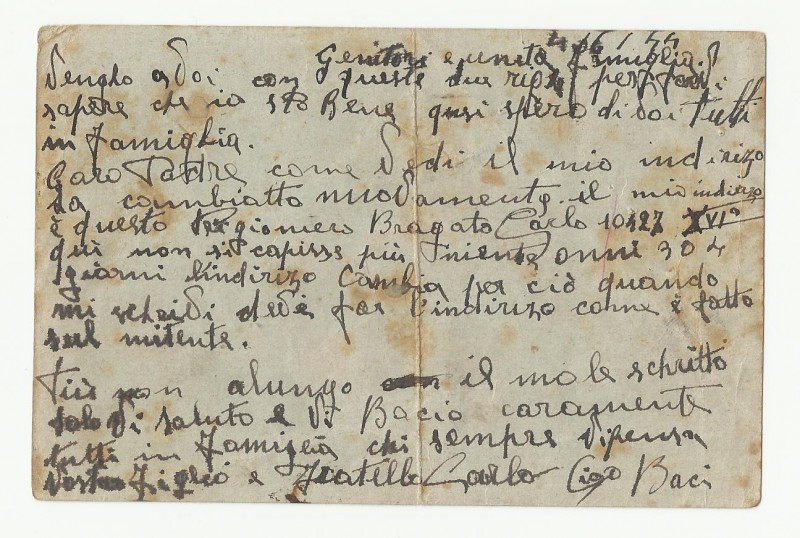 4 16/1/44
Genitori e unita famiglia
Vengho a Voi con queste due righ per farvi
sapere che io sto Bene qusi spero di voi tutti
in famiglia.
Caro Padre come Vedi il mio indirizo
sa combiatto nuovamente. il mio indirizo
è questo Prigioniero Bragato Carlo 10127 XVIº
qui non si capisse più niente onni 3 o 4
giorni l'indirizo Cambia per ciò quando
mi scrividi devi far l'indirizo come è fatto
sul mitente.
Più non alungo il mo le schritto
solo Vi saluto e Vi Bacio caramente
tutti in famiglia chi sempre Vipensa
vostro Figlio e Fratello Carlo Ciao Baci